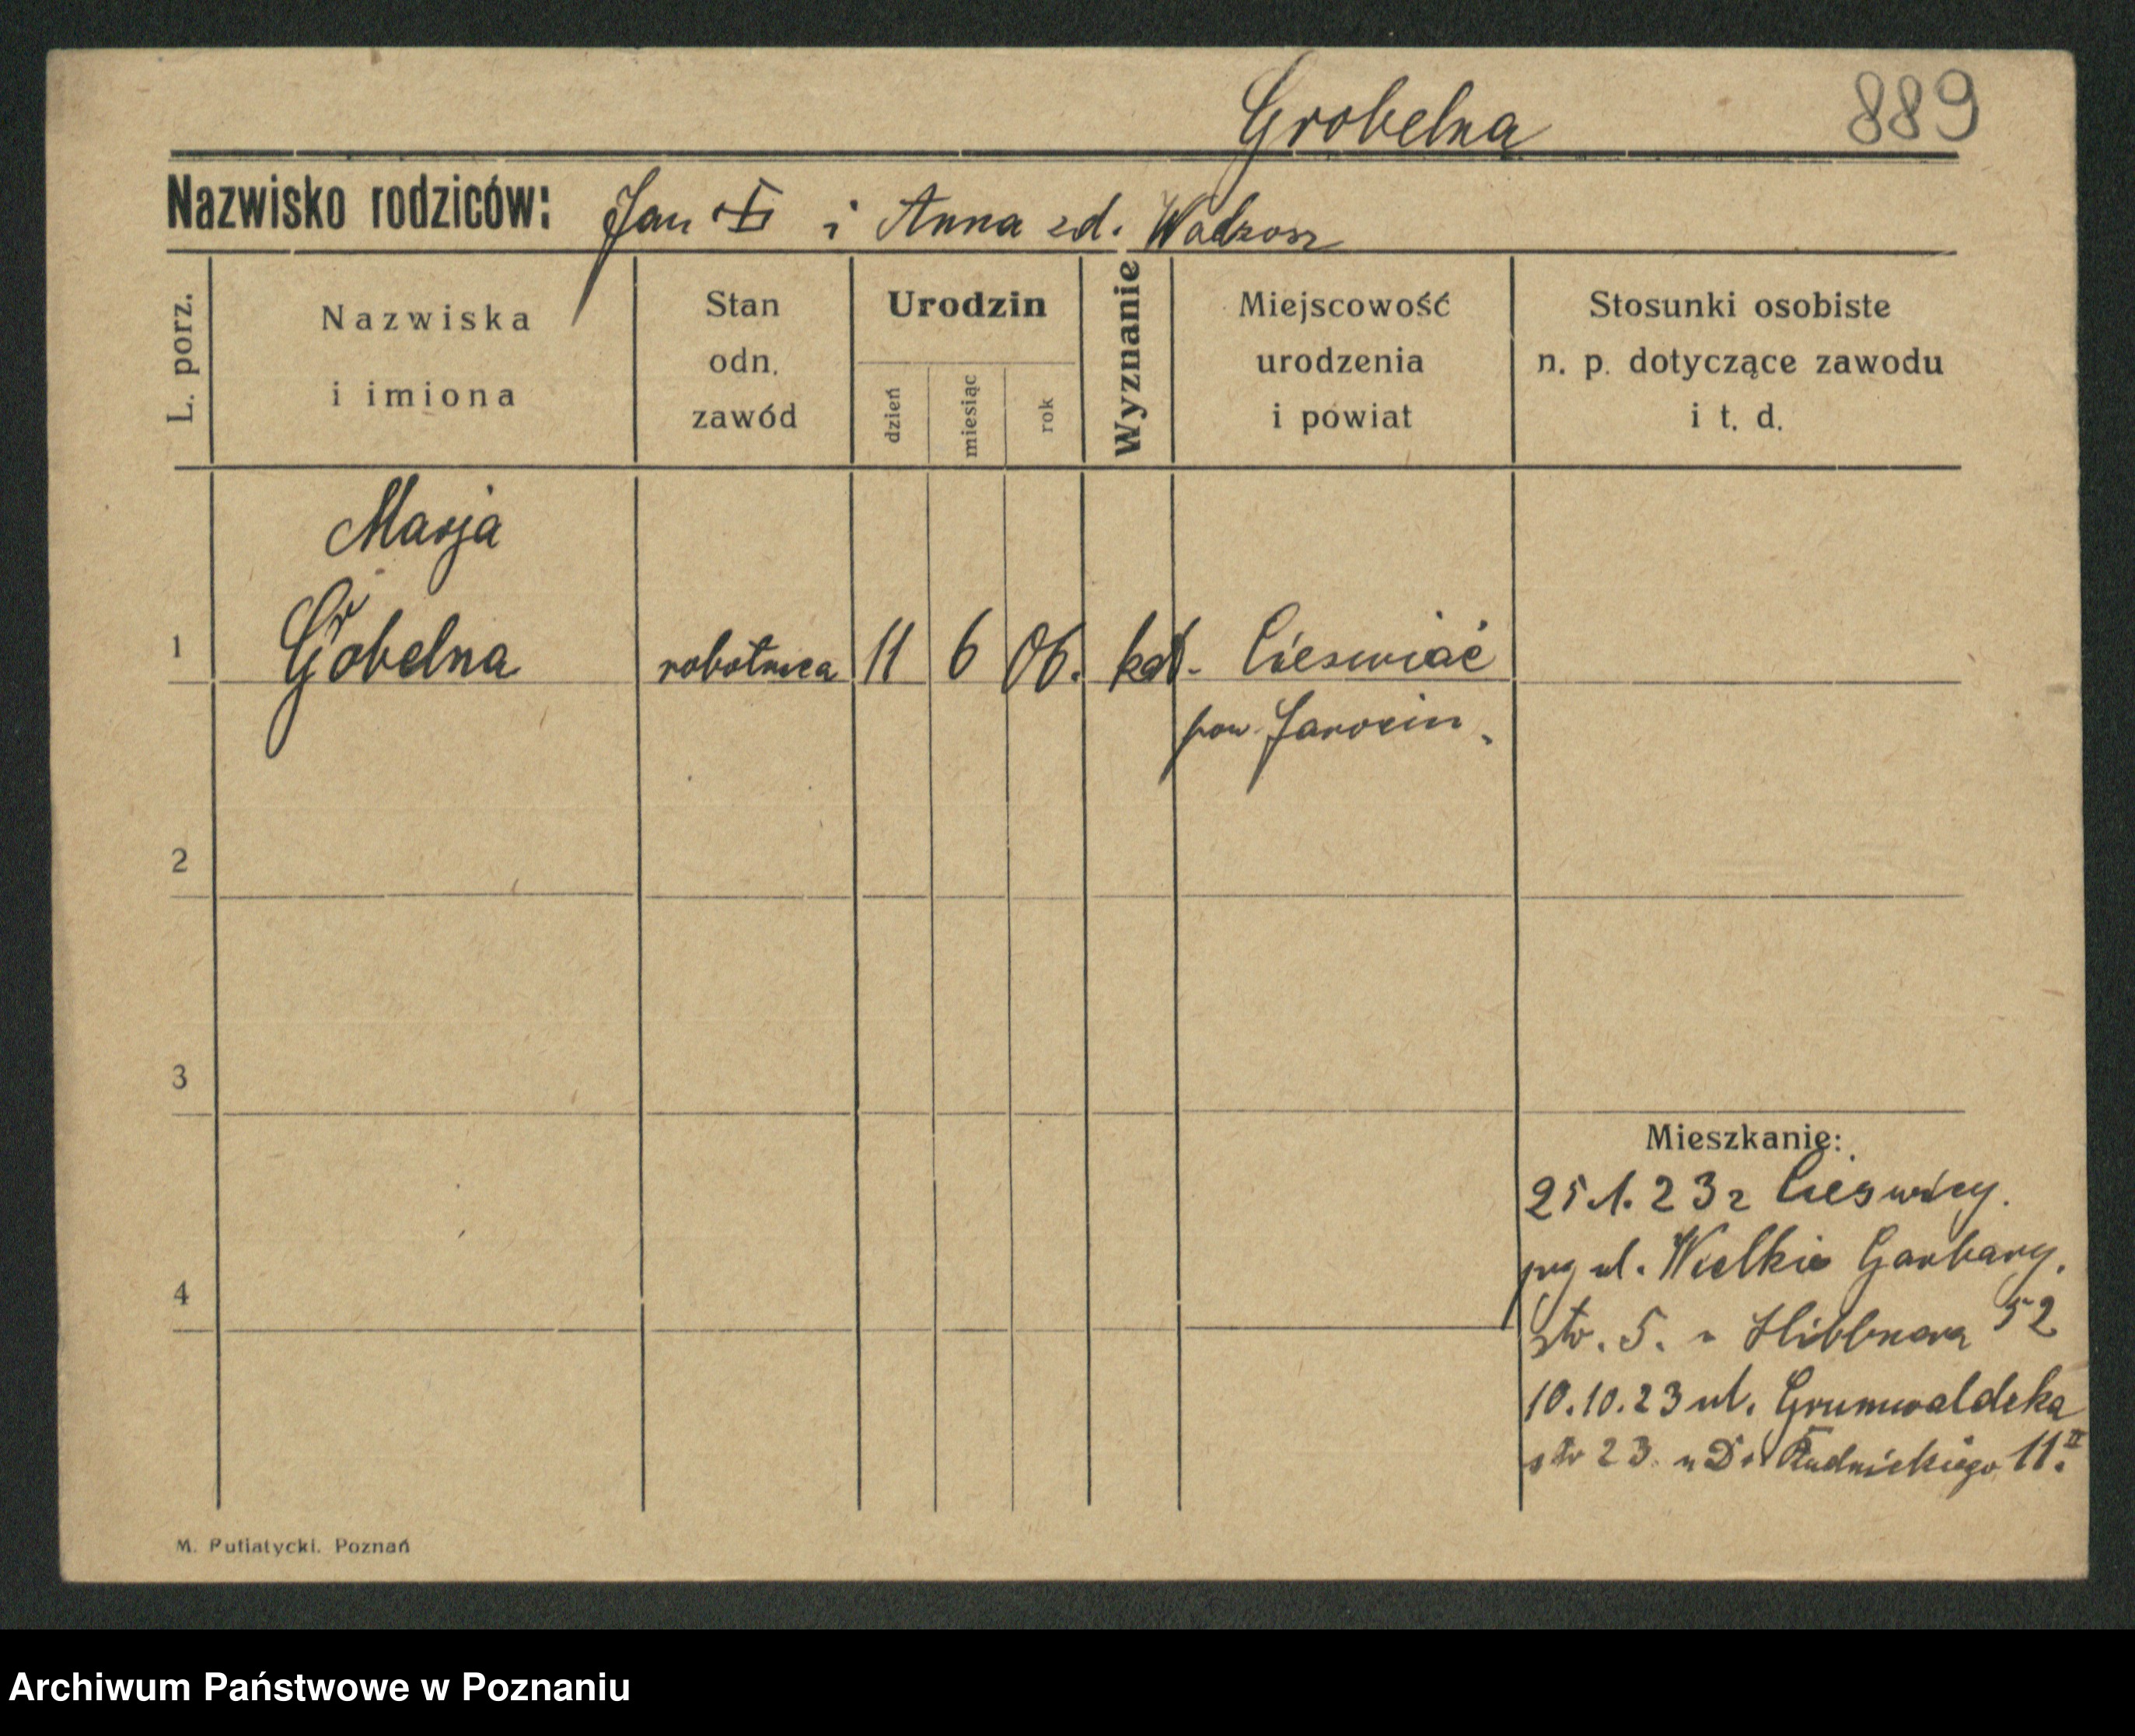 Grobelna 889
Nazwisko rodziców: Jan i Anna zd. Wadzosz
L. porz.
Nazwiska
i imiona
Stan
odn.
zawód
Urodzin
dzień
miesiąc
rok
Wyznanie
Miejscowość
urodzenia
i powiat
Stosunki osobiste
n. p. dotyczące zawodu
i t. d.
Marja
1 Grobelna robotnica 11 6 06. kat.
pow. Jarocin
2
3
4
Mieszkanie:
25.1.23 z
ul. Wielkie Garbary.
str. 5. 52
10.10.23 ul. Grunwaldzka
str 23. u Rudnickiego 11. II
M. Putiatycki. Poznań
Archiwum Państwowe w Poznaniu